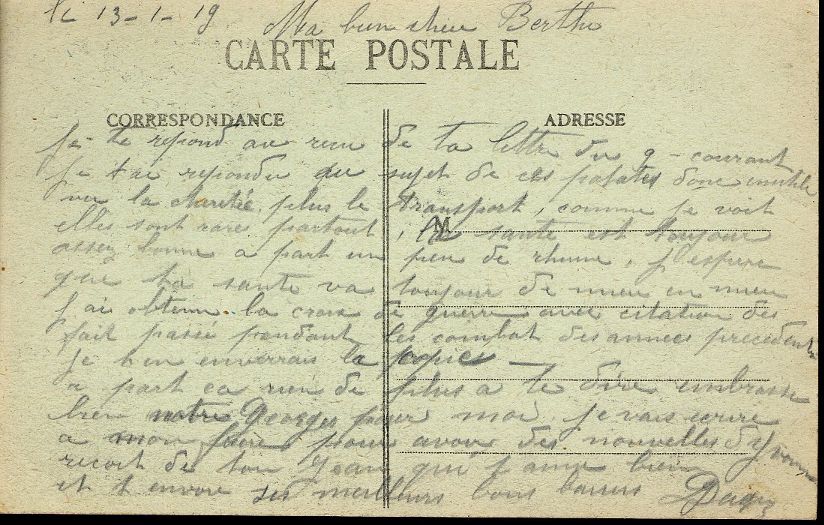 13-1-19 Ma bien chère Berthe
CARTE POSTALE
CORRESPONDANCE ADRESSE
Je te repond au recu de ta lettre du 9 courant
Je t'ai repondu au sujet de ces patates donc inutile
vu la chereté plus le transport, comme je voit
elles sont rare partout, M sante est toujour
assez bonne a part un peu de rhume, j'espere
que ta sante va toujour de mieu en mieu
J'ai obtenu la croix de guerre avec citation des
fait passé pendant les combat des annees precedente
Je t'en enverrais la copie
a part ca rien de plus a te dire embrasse
bien notre Georges pour moi je vais ecrire
a mon frere pour avoir des nouvelles d'Yvonne
recoit de ton Jean qui t'aime bien
et t'envoie ses meilleurs bons baisers